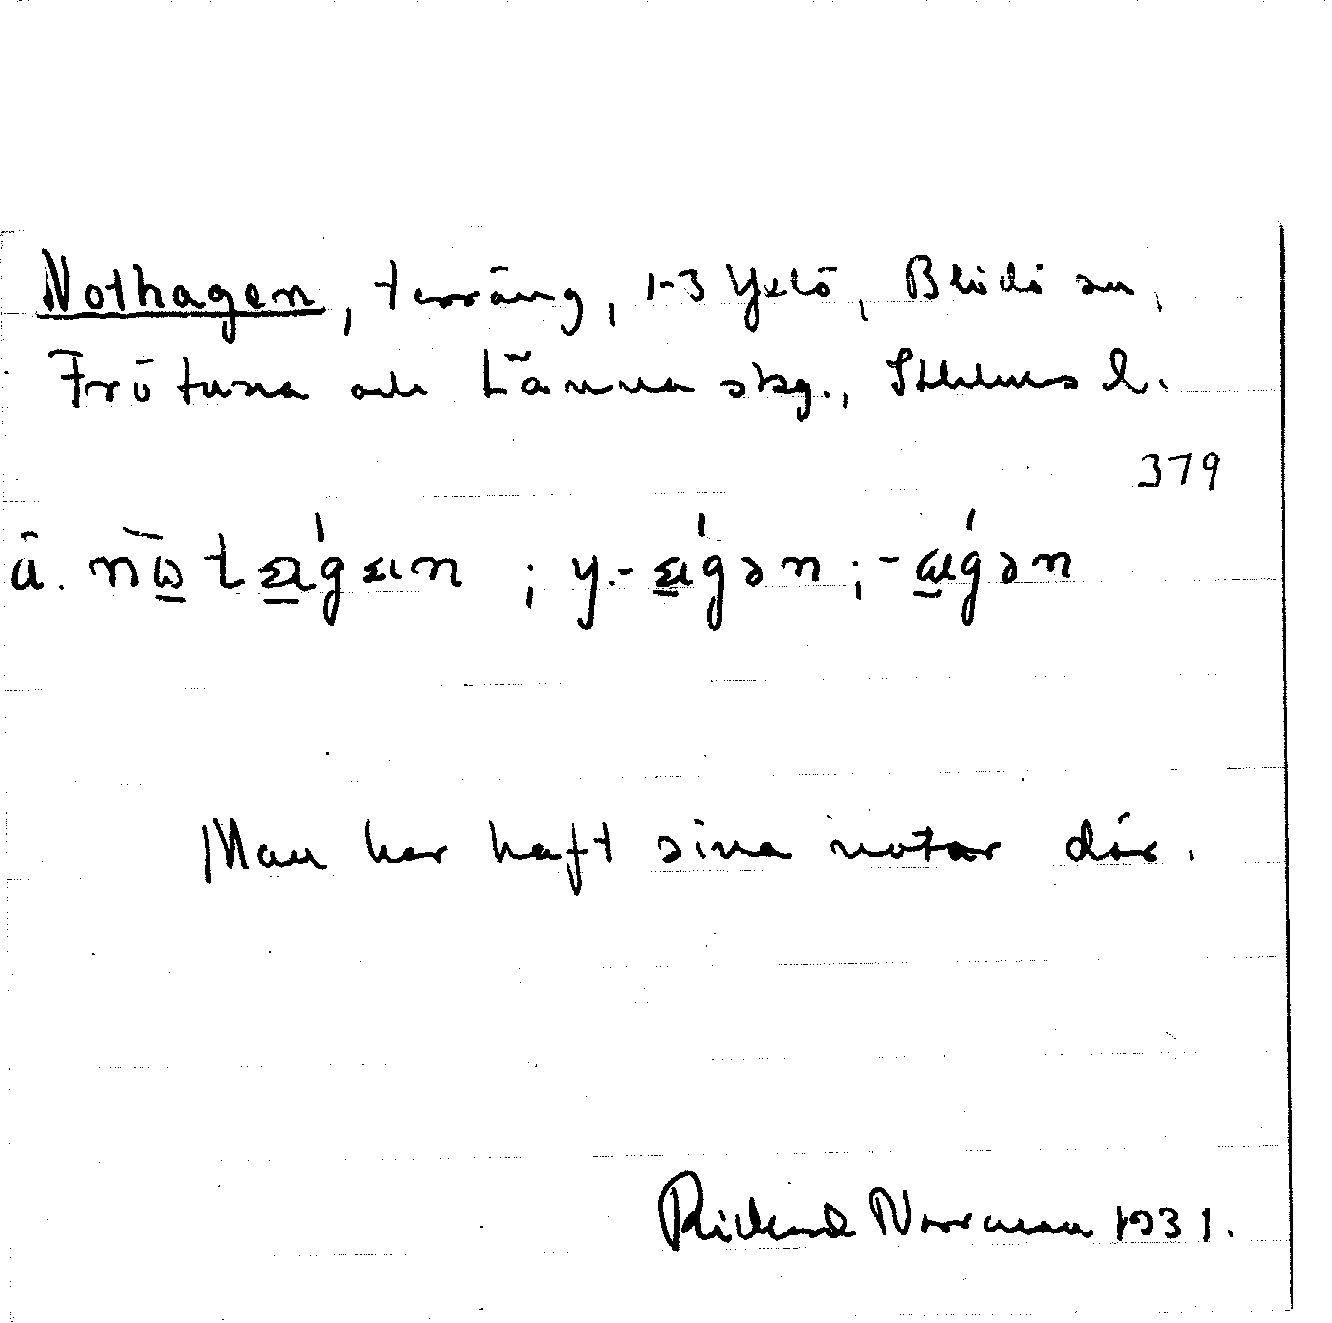 Nothagen, terräng, 1-3 Yxlö, Blidö sn,
Frötuna och Länna skg., Sthlms l.
379
ä. ; y.- ; -
Man har haft sina notar där.
Rickard Norrman 1931.